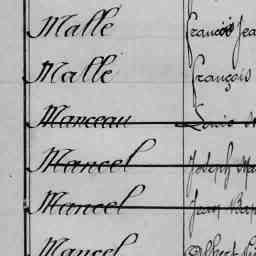 Mallé François Jea
Mallé François
Marceau Louis
Marcel Joseph Ma
Marcel Jean Bap
Marcel Albert